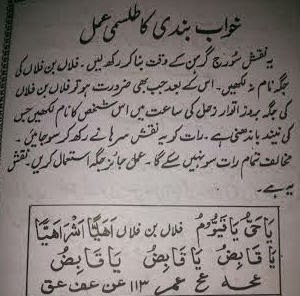 خواب بندی کا طلسمی عمل
یہ نقش سورج گرہن کے وقت بنا کر رکھ لیں۔ فلاں بن فلاں کی
جگہ نام نہ لکھیں۔ اس کے بعد جب بھی ضرورت ہو تو فلاں بن فلاں
کی جگہ بروز اتوار زحل کی ساعت میں اس شخص کا نام لکھیں جس
کی نیند باندھنی ہے۔ رات کو یہ نقش سرہانے رکھ کر سو جائیں۔
مخالف تمام رات سو نہیں سکے گا۔ عمل جائز جگہ استعمال کریں۔ نقش
یہ ہے۔
یَا حَیُّ یَا قَیُّوْمُ فلاں بن فلاں اَھَیًّا اَشْرَاھَیًّا
یَا قَابِضُ یَا قَابِضُ یَا قَابِضُ
عمر ۱۱۳ عن عف عق